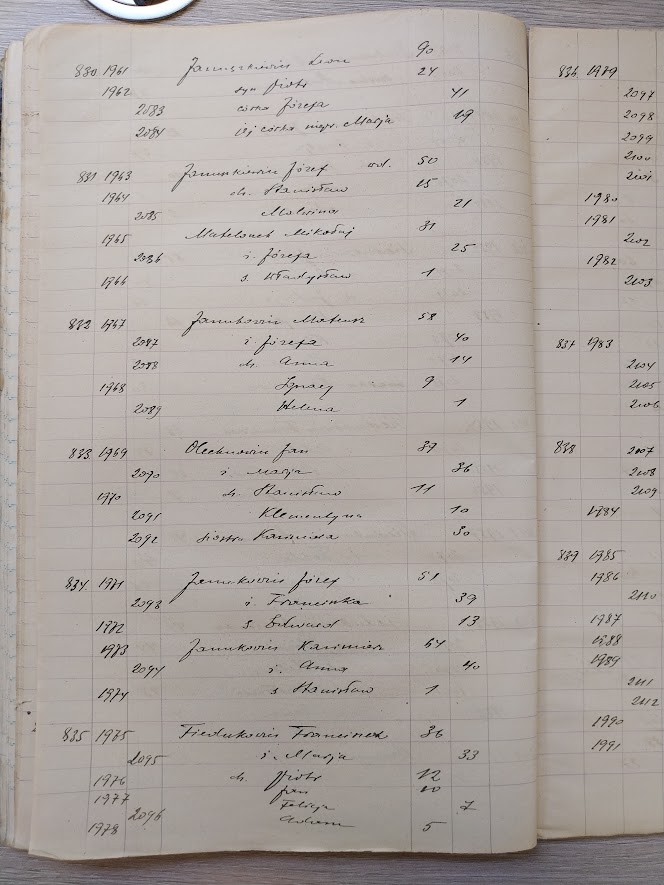 830 1961 Januszkiewicz Leon 90
1962 syn Piotr 24
2083 córka Józefa 41
2084 jej córka niepr. Marja 19
831 1963 Januszkiewicz Józef wd. 50
1964 dz. Stanisław 15
2085 Malwina 21
1965 Mikołaj 31
2086 ż. Józefa 25
1966 s. Władysław 1
832 1967 Mateusz 58
2087 ż. Józefa 40
2088 dz. Anna 14
1968 Ignacy 9
2089 Helena 1
833 1969 Olechnowicz Jan 37
2090 ż. Marja 36
1970 dz. Stanisław 11
2091 Klementyna 10
2092 siostra Kazimiera 30
834 1971 Józef 51
2093 ż. Franciszka 39
1972 s. Edward 13
1973 Kazimierz 44
2094 ż. Anna 40
1974 s. Stanisław 1
835 1975 Fiedukowicz Franciszek 36
2095 ż. Marja 33
1976 dz. Piotr 12
1977 Jan 10
2096 Felicja 7
1978 Adam 5
836 1979
2097
2098
2099
2100
2101
1980
1981
2102
1982
2103
837 1983
2104
2105
2106
838 2107
2108
2109
1984
839 1985
1986
2110
1987
1988
1989
2111
2112
1990
1991